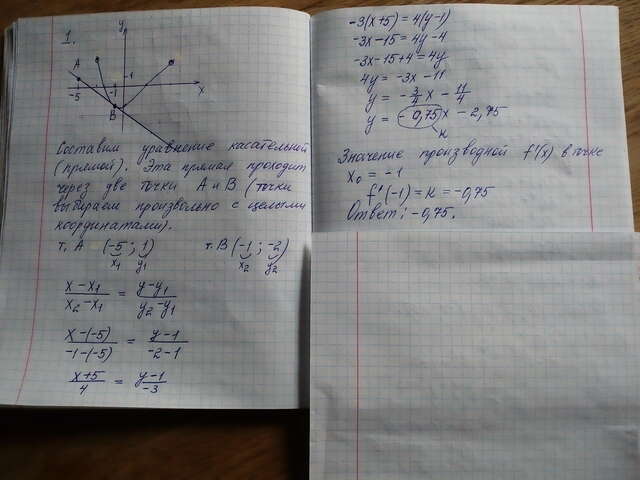 1.
y
A
-5
-1
1
x
B
Составим уравнение касательной
(прямой). Эта прямая проходит
через две точки A и B (точки
выбираем произвольно с целыми
координатами).
т. A (-5 ; 1) т. B (-1 ; -2)
x₁ y₁ x₂ y₂
(x - x₁)/(x₂ - x₁) = (y - y₁)/(y₂ - y₁)
(x - (-5))/(-1 - (-5)) = (y - 1)/(-2 - 1)
(x + 5)/4 = (y - 1)/-3
-3(x+5) = 4(y-1)
-3x - 15 = 4y - 4
-3x - 15 + 4 = 4y
4y = -3x - 11
y = - 3/4 x - 11/4
y = - 0,75 x - 2,75
к
Значение производной f'(x) в точке
x₀ = -1
f'(-1) = к = -0,75
Ответ: -0,75.